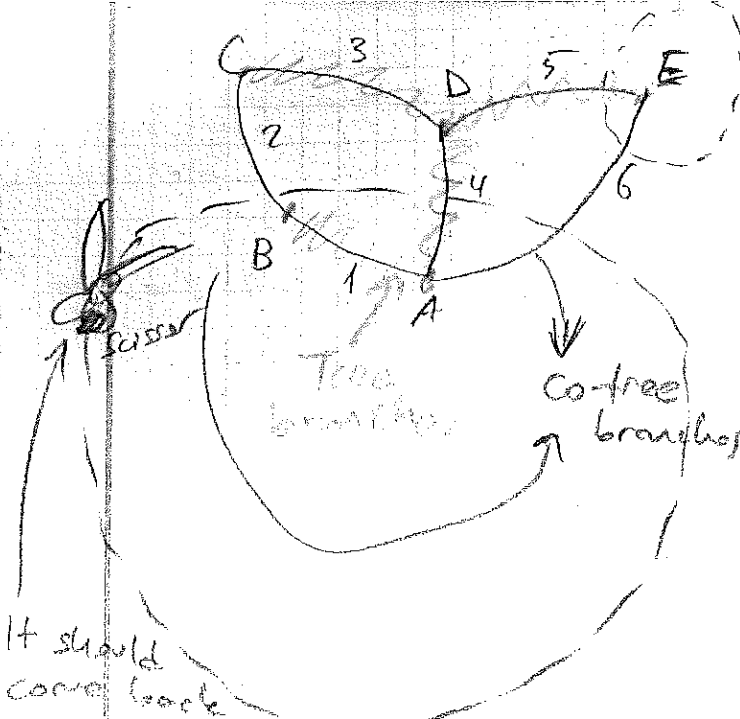 C
3
D
5
E
2
4
6
B
1
A
scissor
Tree
branches
Co-tree
branches
It should
come back